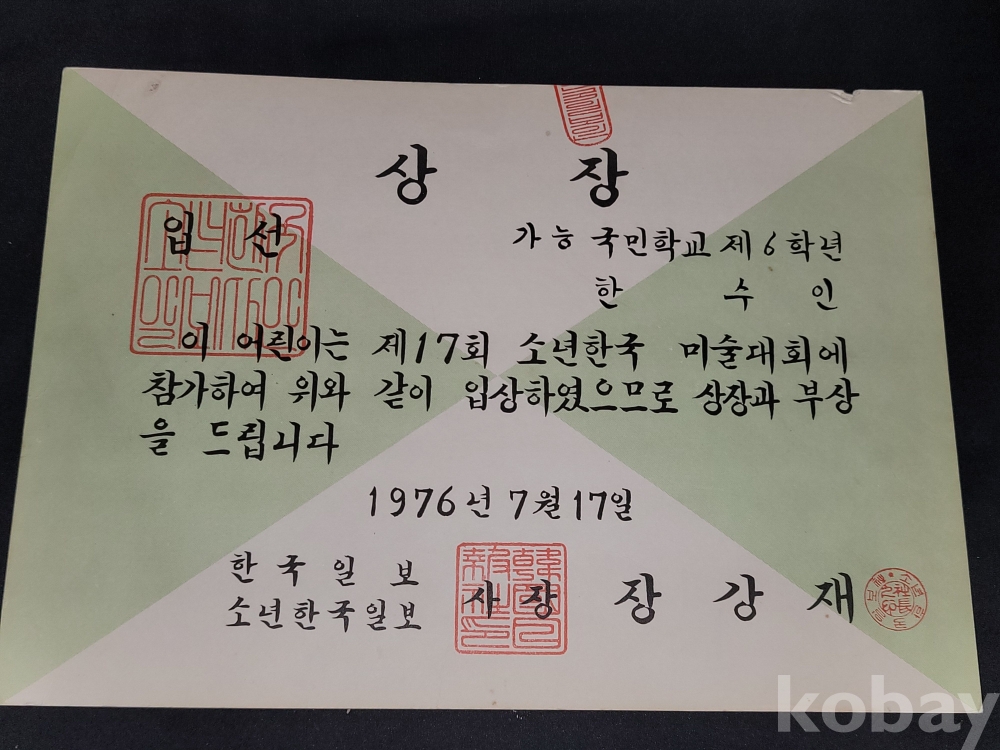 상장
입선
가능 국민학교 제6학년
한수인
이 어린이는 제17회 소년한국 미술대회에
참가하여 위와 같이 입상하였으므로 상장과 부상
을 드립니다
1976년 7월 17일
한국일보
소년한국일보
사장 장강재
kobay